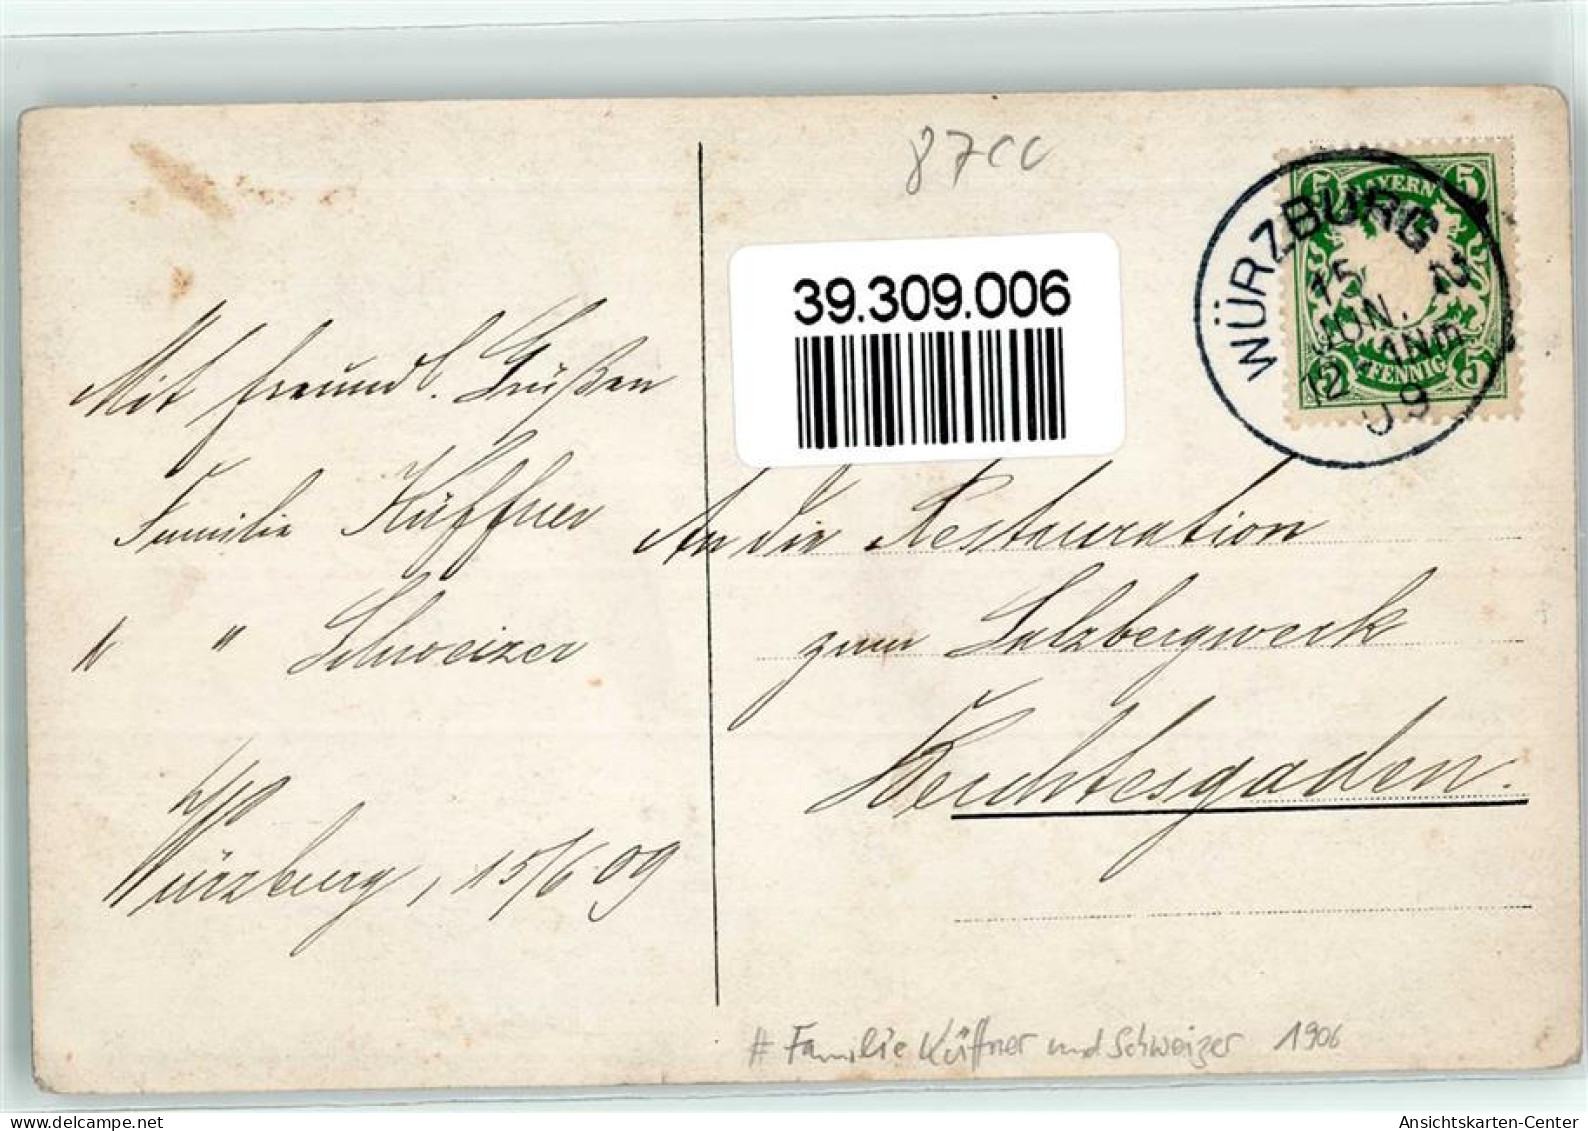 87cc
39.309.006
5 BAYERN 5
5 PFENNIG 5
WÜRZBURG 2
15 JUN.
12-1Nm
09
Mit freundl. Grüßen
Familie Küffner
" " Schweizer
Würzburg, 15/6.09
An die Restauration
zum Salzbergwerk
Berchtesgaden.
# Familie Küffner und Schweizer 1906
Ansichtskarten-Center